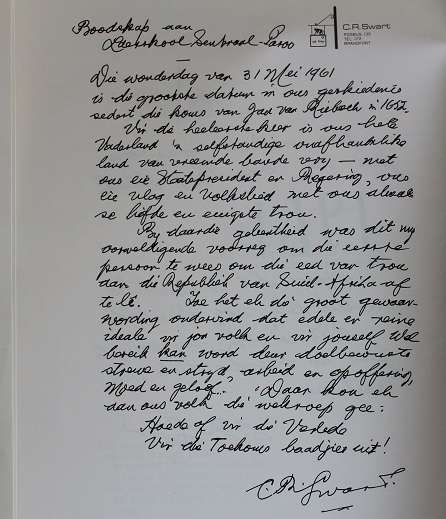 C.R. Swart
POSBUS 135
TEL. 279
BRANDFORT
Boodskap aan
Laerskool Sentraal-Paroo
Die wonderdag van 31 Mei 1961
is die grootste datum in ons geskiedenis
sedert die koms van Jan van Riebeeck in 1652.
Vir die heel eerste keer is ons hele
Vaderland 'n selfstandige onafhanklike
land van vreemde bande vry — met
ons eie Staatspresident en Regering, ons
eie vlag en Volkslied met ons almal
se liefde en enigste trou.
By daardie geleentheid was dit my
oorweldigende voorreg om die eerste
persoon te wees om die eed van trou
aan die Republiek van Suid-Afrika af
te lê. Toe het ek dié groot gewaar-
wording ondervind dat edele en reine
ideale vir jou volk en vir jouself wel
bereik kan word deur doelbewuste
strewe en stryd, arbeid en opoffering,
moed en geloof. Daar kon ek
aan ons volk die wekroep gee:
Hoede af vir die Verlede
Vir die Toekoms baadjies uit!
C.R. Swart.